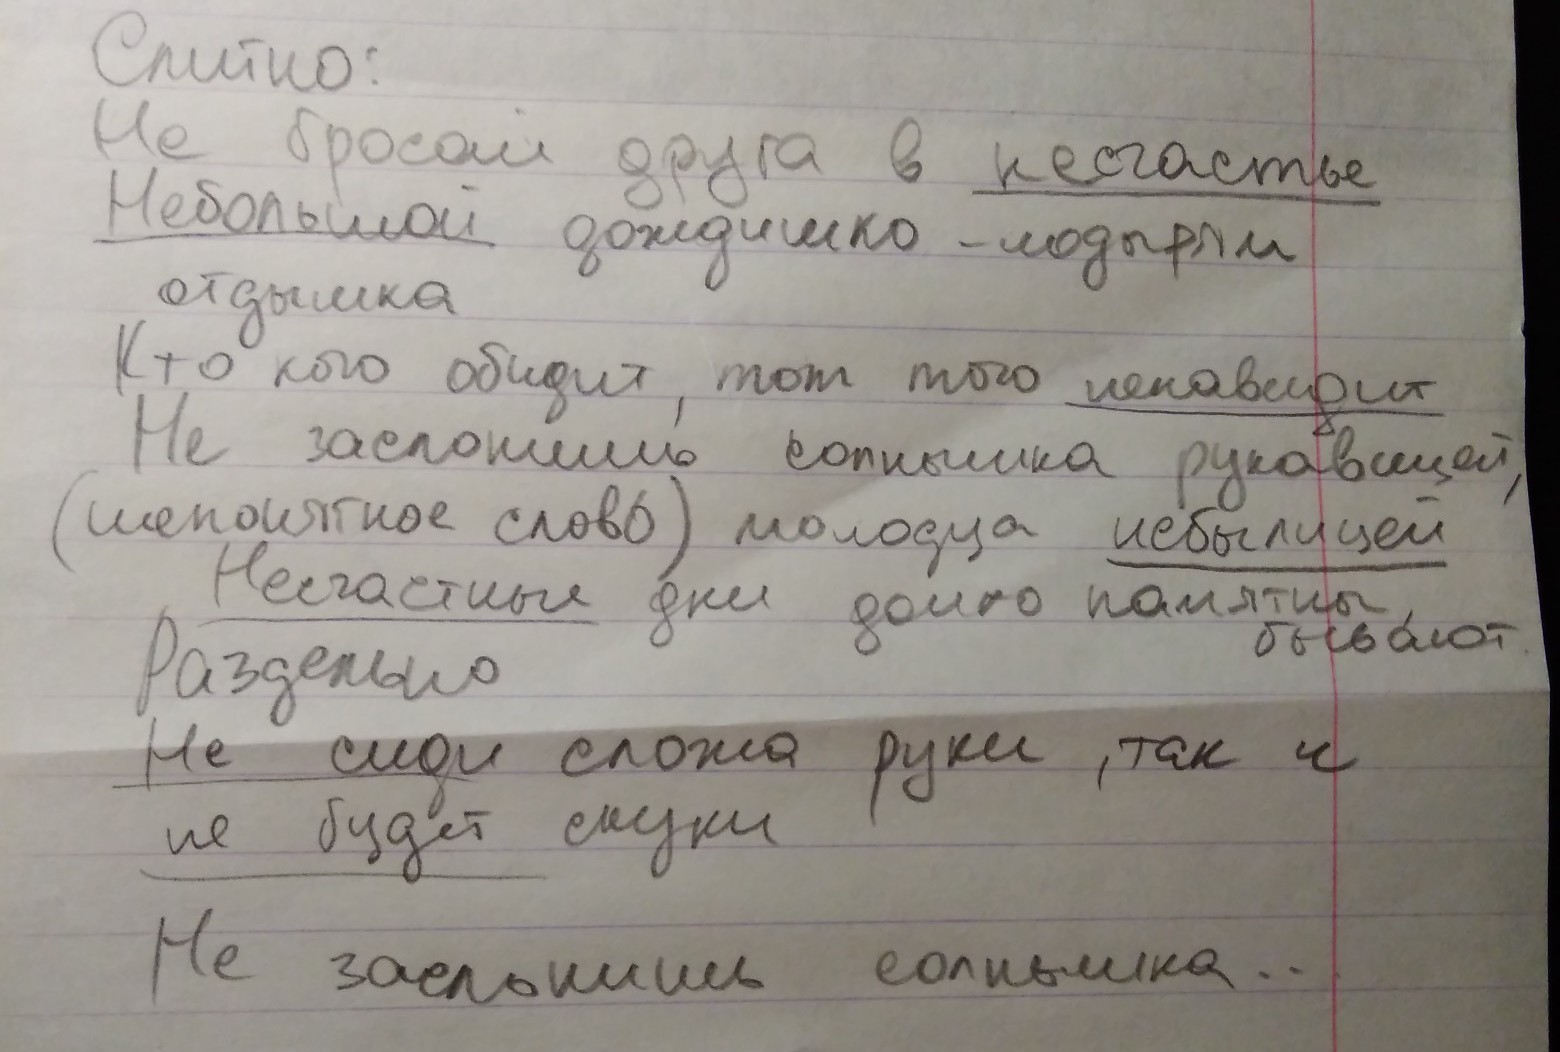 Слитно:
Не бросай друга в несчастье
Небольшой дождишко - лодырям
отдышка
Кто кого обидит, тот того ненавидит
Не заслонишь солнышка рукавицей,
(непонятное слово) молодца небылицей
Несчастные дни долго памятны
бывают.
Раздельно
Не сиди сложа руки, так и
не будет скуки
Не заслонишь солнышка...